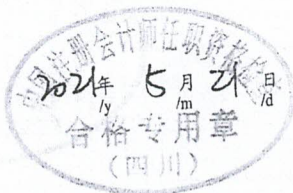 中国注册会计师任职资格检查
2021年 5月 21日
/y /m /d
合格专用章
(四川)